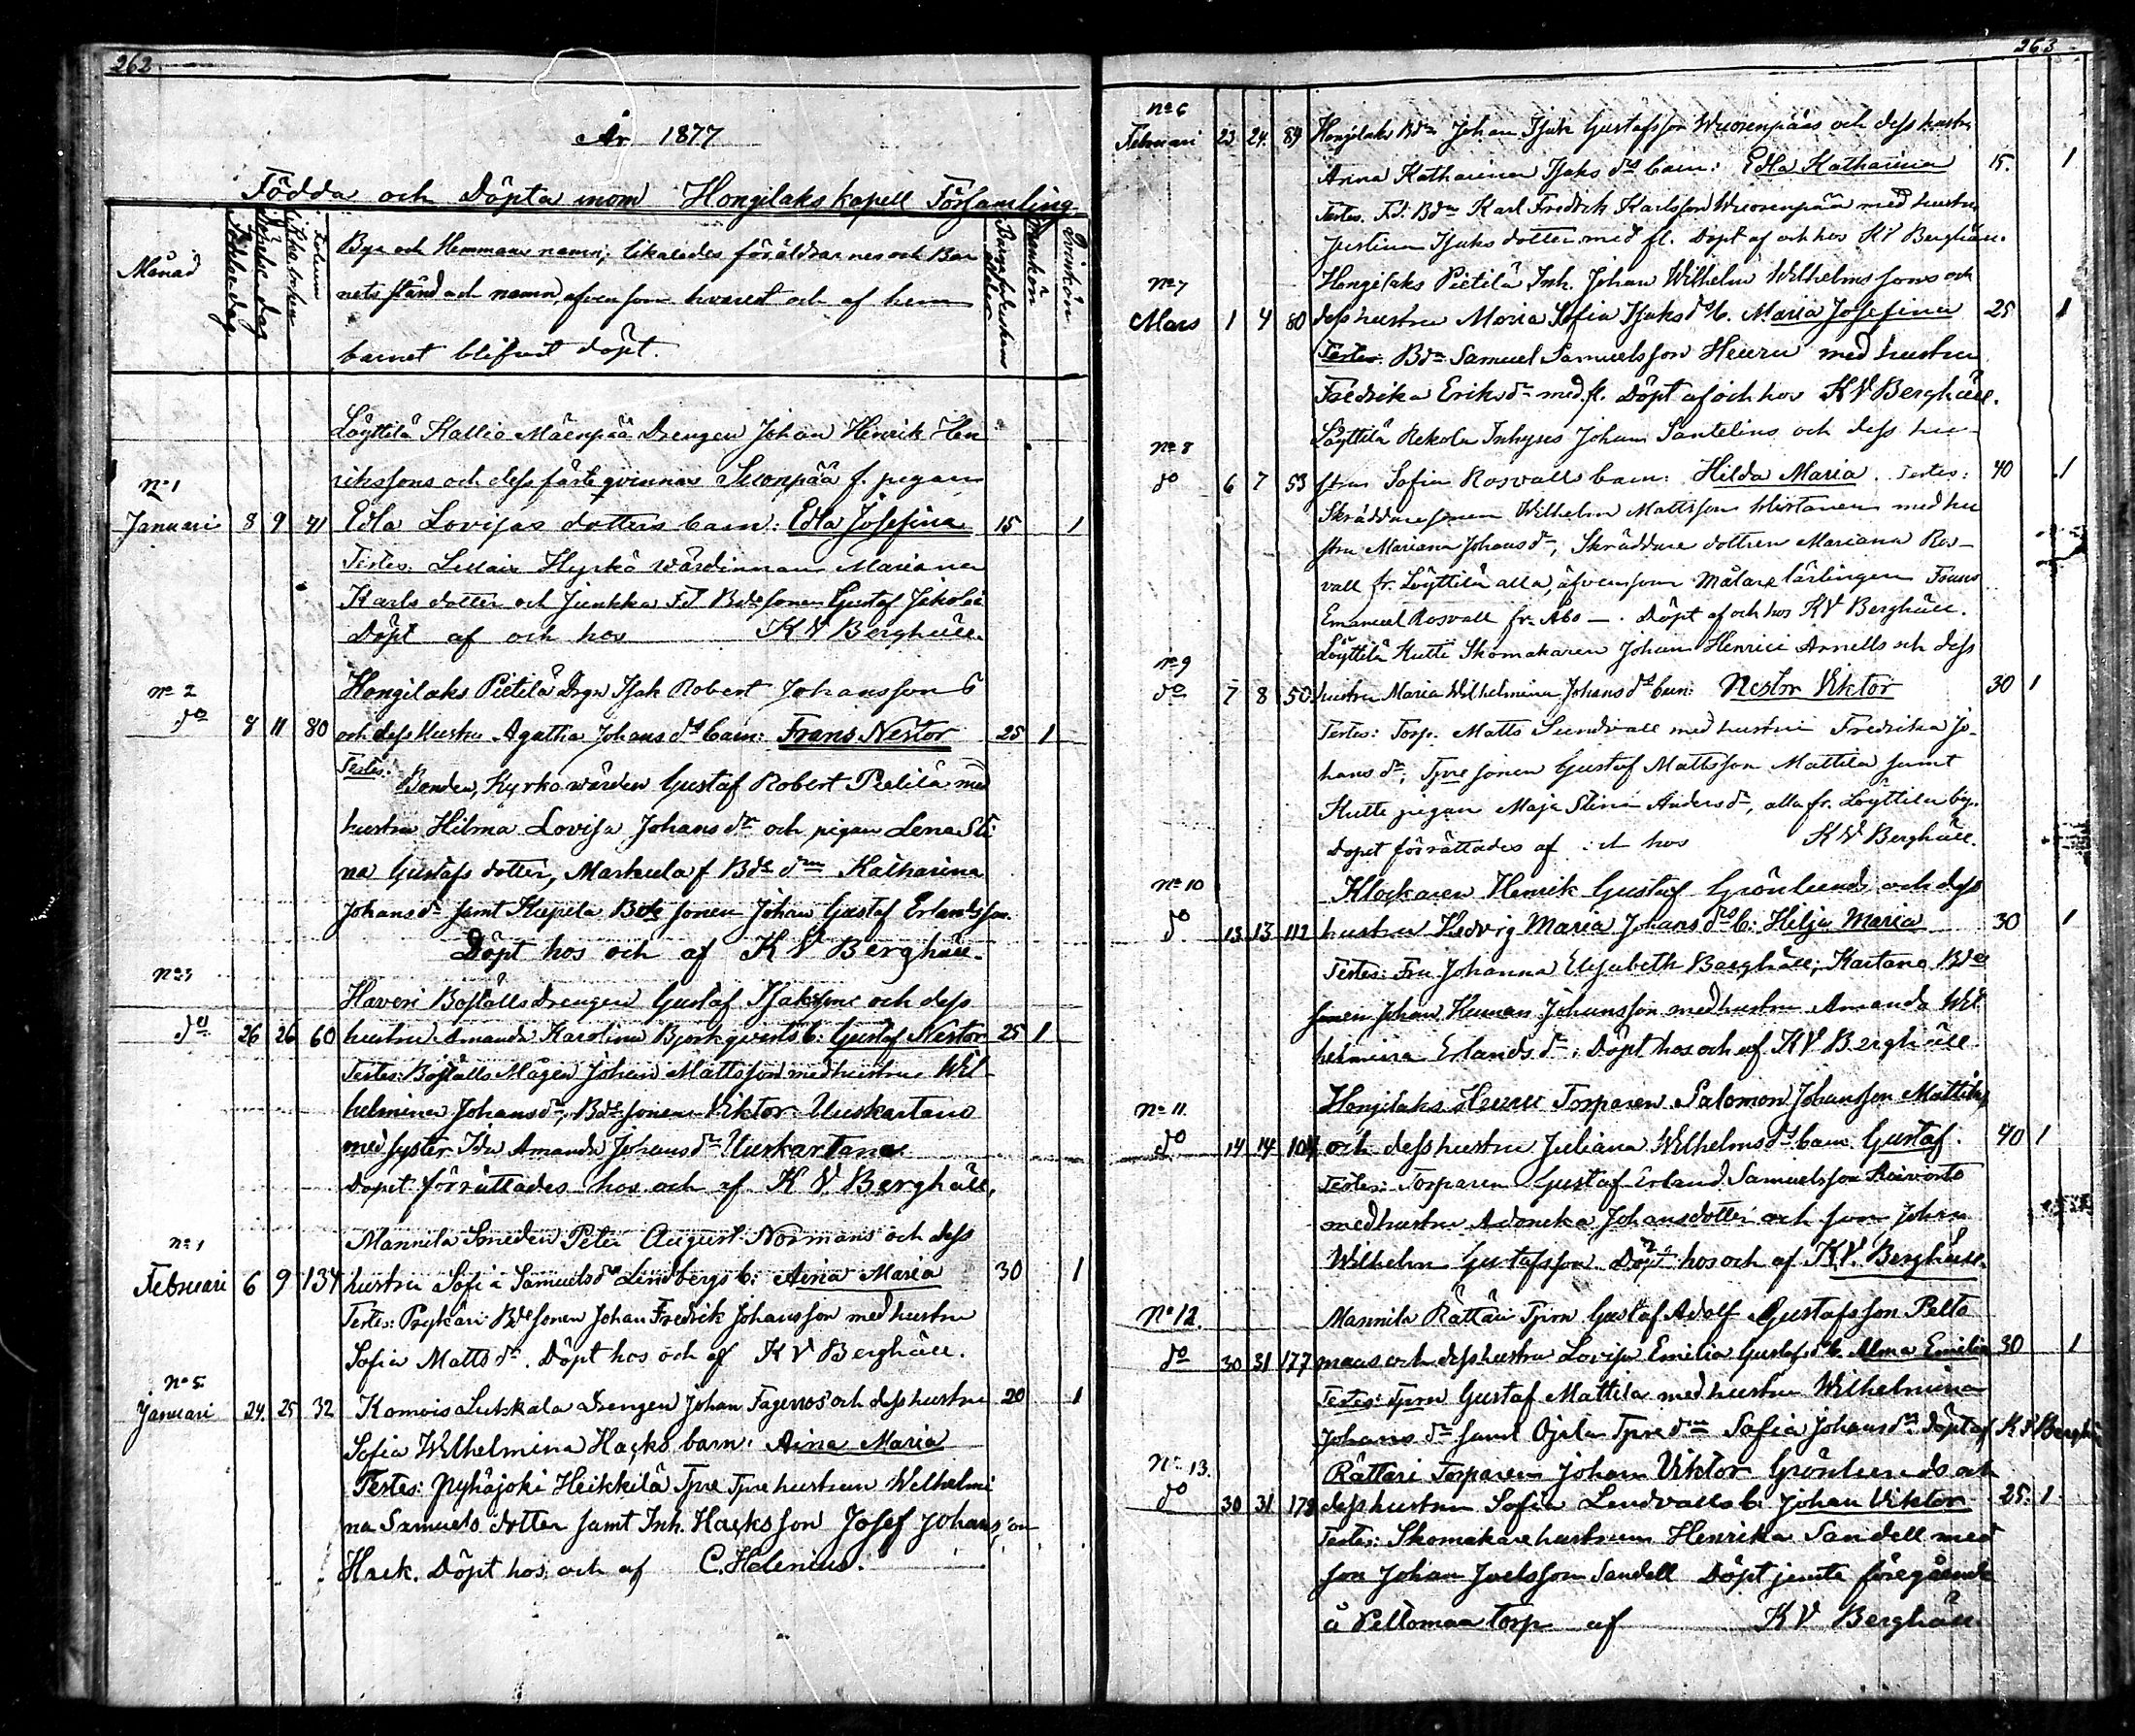 262
År 1877
Födda och Döpta inom Hongilaks kapell Församling
Månad
Födelse dag
Döpelse dag
Bya och Hemmans namn, likaledes föräldrarnes och Bar
nets stånd och namn, äfvensom hvarest och af hvem
barnet blifvit döpt.
Mankön
Qvinkön
Löyttilä Kallio Mäenpää Drengen Johan Henrik Hen
rikssons och dess fästeqvinnas f. pigan
No 1
Januari 8 9 41 Edla Lovisas dotters barn: Edla Josefina 15 1
Testes: Hyrkö wärdinnan Mariana
Karls dotter och Junkka Fd Bdesonen Gustaf
Döpt af och hos K V Berghäll.
No 2
Hongilaks Pietilä Drgn Isak Robert Johansson
do 8 11 80 och dess Hustru Agatha Johans ds barn: Frans Nestor 25 1
Testes:
Bonden, Kyrkowärden Gustaf Robert Pietilä med
hustru Hilma Lovisa Johans dr och pigan Lena Sti
na Gustafs dotter, Markula f Bde dm Katharina
Johans dr samt Bde sonen Johan Gustaf Erlandsson.
Döpt hos och af K V Berghäll.
No 3
Haveri Boställs drengen Gustaf Isakssons och dess
do 26 26 60 hustru Amanda Karolina Björkqvists b: Gustaf Nestor 25 1
Testes: Boställs Mågen Johan Mattsson med hustru Wil-
helmina Johans dr, Bdesonen Viktor Uuskartano
med syster Ida Amanda Johans dr Uuskartano.
Dopet förrättades hos och af K V. Berghäll.
Mannila Smeden Peter August Normans och dess
Februari 6 9 134 hustru Sofia Samuels dr Lindbergs b: Aina Maria 30 1
Testes: Bdesonen Johan Fredrik Johansson med hustru
Sofia Matts dr. Döpt hos och af K V Berghäll.
No 5.
Januari 24. 25 32 Komois Drengen Johan Fagerroos och dess hustru 20 1
Sofia Wilhelmina Hacks barn: Aina Maria
Testes: Pyhäjoki Heikkilä Tpre Tprehustrun Wilhelmi
na Samuels dotter samt Inh. Hacks son Josef Johansson
Hack. Döpt hos och af C. Helenius.
263
No 6
Februari 23 24. 89 Hongilaks Bdn Johan Isak Gustafsson Wuorenpääs och dess hustru
Anna Katharina Isaks ds barn: Edla Katharina 15. 1
Testes. Fd. Bdn Karl Fredrik Karlsson Wuorenpää med hustru
Justina Isaks dotter med fl. Döpt af och hos K V Berghäll.
No 7
Hongilaks Pietilä Inh. Johan Wilhelm Wilhelmssons och
Mars 1 4 80 dess hustru Maria Sofia Isaks ds b. Maria Josefina 25 1
Testes: Bdn Samuel Samuelsson Heuru med hustru
Fredrika Eriks dr med fl. Döpt af och hos K V Berghäll.
No 8
Löyttilä Rekola Inhyses Johan Santelins och dess hu-
do 6 7 53 stru Sofia Rosvalls barn: Hilda Maria. Testes: 40 1
Skräddaresonen Wilhelm Mattsson med hu
stru Mariana Johans dr, Skräddare dottren Mariana Ros-
vall fr. Löyttilä alla, äfvensom Målare lärlingen Frans
Emanuel Rosvall fr. Åbo —. Döpt af och hos K V Berghäll.
No 9
Löyttilä Kutti Skomakaren Johan Henric Arnells och dess
do 7 8 50 hustru Maria Wilhelmina Johans ds barn: Nestor Viktor 30 1
Testes: Torp. Matts Sundvall med hustru Fredrika Jo-
hans dr, Tpresonen Gustaf Mattsson Mattila samt
Kutti pigan Maja Stina Anders dr, alla fr. Löyttilä by.
Dopet förrättades af och hos K V Berghäll.
No 10
Klockaren Henrik Gustaf Grönlunds och dess
do 13 13 112 hustru Hedvig Maria Johans ds b: Hilja Maria 30 1
Testes: Fru Johanna Elisabeth Berghäll; Kartano Bde
sonen Johan Herman Johansson med hustru Amanda Wil
helmina Erlands dr. Döpt hos och af K V Berghäll.
No 11.
Hongilaks Heuru Torparen Salomon Johansson Mattila,
do 14 14 104 och dess hustru Juliana Wilhelms ds barn Gustaf. 40 1
Testes: Torparen Gustaf Erland Samuelsson
med hustru Johansdotter och son Johan
Wilhelm Gustafsson. Döpt hos och af K V. Berghäll.
No 12.
Mannila Rättäri Tprn Gustaf Adolf Gustafsson Pelto
do 30 31 177 maas och dess hustru Lovisa Emilia Gustafs ds b. Alma Emilia 30 1
Testes: Tprn Gustaf Mattila med hustru Wilhelmina
Johans dr samt Ojala Tpre dm Sofia Johans dr. Döpt af K V Berghäll
No. 13.
Rättäri Torparen Johan Viktor Grönlunds och
do 30 31 178 dess hustru Sofia Lindvalls b: Johan Viktor 25. 1
Testes: Skomakarehustrun Henrika Sandell med
son Johan Joelsson Sandell Döpt jemte föregående
å Peltomaa torp af K V Berghäll.